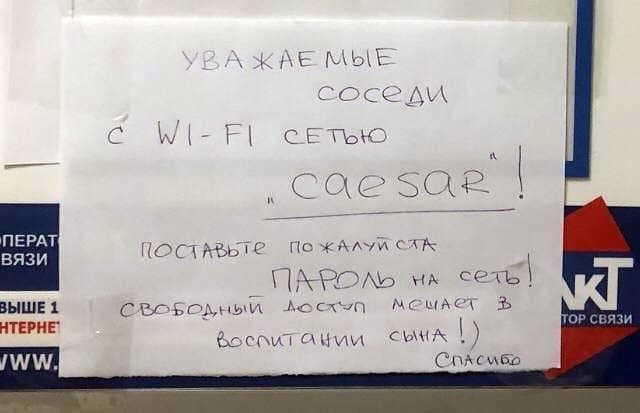 УВАЖАЕМЫЕ
СОСЕДИ
С WI-FI СЕТЬЮ
"caesar"!
ПОСТАВЬТЕ ПОЖАЛУЙСТА
ПАРОЛЬ НА СЕТЬ!
СВОБОДНЫЙ ДОСТУП МЕШАЕТ В
ВОСПИТАНИИ СЫНА!)
СПАСИБО
ПЕРАТ
ВЯЗИ
ВЫШЕ 1
НТЕРНЕТ
WWW.
АКТ
ТОР СВЯЗИ